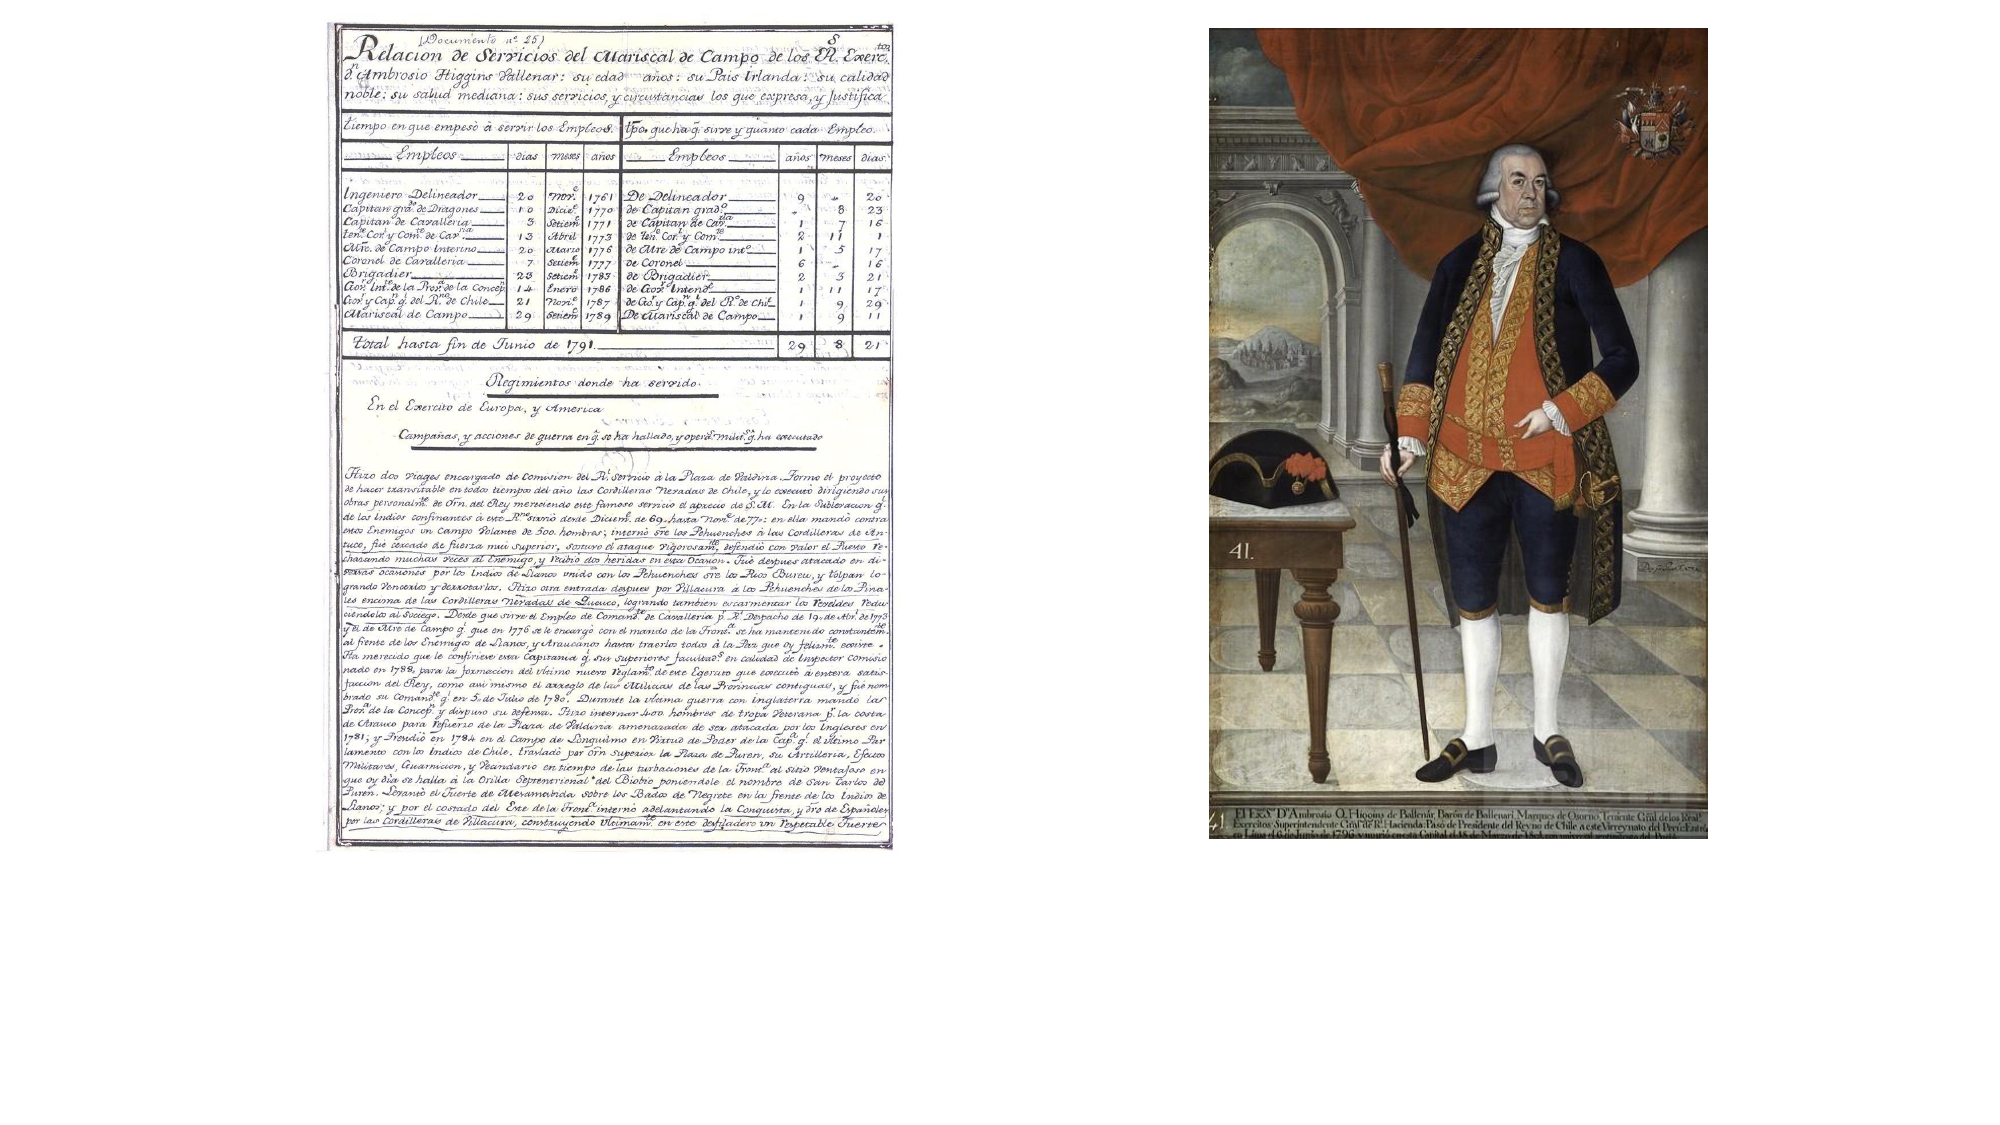 (Documento nº 25)
Relacion de Servicios del Mariscal de Campo de los R.S Exerc.tos
d.n Ambrosio Higgins Vallenar: su edad años: su Pais Irlanda: su calidad
noble: su salud mediana: sus servicios, y circustancias los que expresa, y Justifica
tiempo en que empesò â servir los Empleos. tpo. que ha q̃. sirve y quanto cada Empleo.
Empleos dias meses años Empleos años meses dias
Ingeniero Delineador 20 Nov.e 1761 De Delineador 9 „ 20
Capitan gra.do de Dragones 10 Dicie.e 1770 de Capitan grad.o „ 8 23
Capitan de Cavalleria 3 Setiem.e 1771 de Capitan de Cav.ria 1 7 16
ten.te Cor.l y Com.te de Cav.ria 13 Abril 1773 de ten.e Cor.l y Com.te 2 11 1
Mtre. de Campo Interino 20 Marzo 1776 de Mtre de Campo int.o 1 5 17
Coronel de Cavalleria 7 Setiem.e 1777 de Coronel 6 „ 16
Brigadier 23 Setiem.e 1783 de Brigadier 2 3 21
Gov.r Int.te de la Prov.a de la Concep.n 14 Enero 1786 de Gov.r Intend.e 1 11 17
Gov.r y Cap.n g.l del R.no de Chile 21 Novi.e 1787 de Gov.r y Cap.n g.l del R.o de Chil. 1 9 29
Mariscal de Campo 29 Setiem.e 1789 De Mariscal de Campo 1 9 11
Total hasta fin de Junio de 1791. 29 8 21
Regimientos donde ha servido
En el Exercito de Europa, y America
Campañas, y acciones de guerra en q̃. se ha hallado, y operã.s milit.s q̃. ha executado
Hizo dos viages encargado de Comision del R.l servicio â la Plaza de Valdivia. Formo el proyecto
de hacer transitable en todos tiempos del año las Cordilleras Nevadas de Chile, y lo executò dirigiendo sus
obras personalm.te de Orñ. del Rey mereciendo este famoso servicio el aprecio de S.M. En la Sublevacion g.l
de los Indios confinantes â este R.no desde Diciem.e de 69. hasta Nov.e de 77: en ella mandò contra
estos Enemigos un Campo Volante de 500. hombres; internò sre los Pehuenches â las Cordilleras de An-
tuco, fuè cercado de fuerza mui superior, sostuvo el ataque vigorosam.te, defendiò con valor el Puesto re-
chasando muchas veces al Enemigo, y recibio dos heridas en esta Ocasion. Fuè despues atacado en di-
versas ocasiones por los Indios de Llanos unido con los Pehuenches sre los Rios Bureu, y tolpan lo-
grando Vencerlos y derrotarlos. Hizo otra entrada despues por Villacura a los Pehuenches de los Pina-
les encima de las Cordilleras Nevadas de Queuco, logrando tambien escarmentar los Reveldes redu
ciendolos al Sociego. Desde que sirve el Empleo de Comand.te de Cavalleria p.r R.l Despacho de 19. de Abr.l de 1773
y el de Mtre de Campo g.l que en 1776 se le encargò con el mando de la Front.a se ha mantenido constantem.te
al frente de los Enemigos de Llanos, y Araucanos hasta traerlos todos â la Paz que oy felizm.te existe.
Ha merecido que le confiriese esta Capitania g.l sus superiores facultad.s en calidad de Inspector Comisio
nado en 1788, para la formacion del ultimo nuevo reglam.to de este Egercito que executò â entera satis-
faccion del Rey, como asi mismo el arreglo de las Milicias de las Provincias contiguas, y fuè nom
brado su Comand.te g.l en 5. de Julio de 1780. Durante la ultima guerra con Inglaterra mandò las
Prov.a de la Concep.n y dispuso su defensa. Hizo internar 400. hombres de tropa Veterana p.r la costa
de Arauco para refuerzo de la Plaza de Valdivia amenazada de ser atacada por los Ingleses en
1781; y Presidiò en 1784 en el Campo de Lonquilmo en Virtud de Poder de la Cap.a g.l el ultimo Par
lamento con los Indios de Chile. trasladò por orñ superior la Plaza de Puren, su Artilleria, Efectos
Militares, Guarnicion, y Vecindario en tiempo de las turbaciones de la Front.a al sitio Ventajoso en
que oy dia se halla â la Orilla Septentrional del Biobio poniendole el nombre de San Carlos de
Puren. Levantò el Fuerte de Mesamabida sobre los Bados de Negrete en la frente de los Indios de
Llanos; y por el costado del Este de la Front.a internò adelantando la Conquista, y dro de Españoles
por las Cordilleras de Villacura, construyendo ultimam.te en este desfiladero un respetable Fuerte
41.
41
El Exc.mo S.r D.n Ambrosio O,Higgins de Ballenar, Barón de Ballenari, Marques de Osorno, Teniente Gral de los Real.s
Exercitos, Superintendente Gral de R.l Hacienda: Pasó de Presidente del Reyno de Chile a este Virreynato del Perú: Entró
en Lima el 6 de Junio de 1796 y murió en esta Capital el 18 de Marzo de